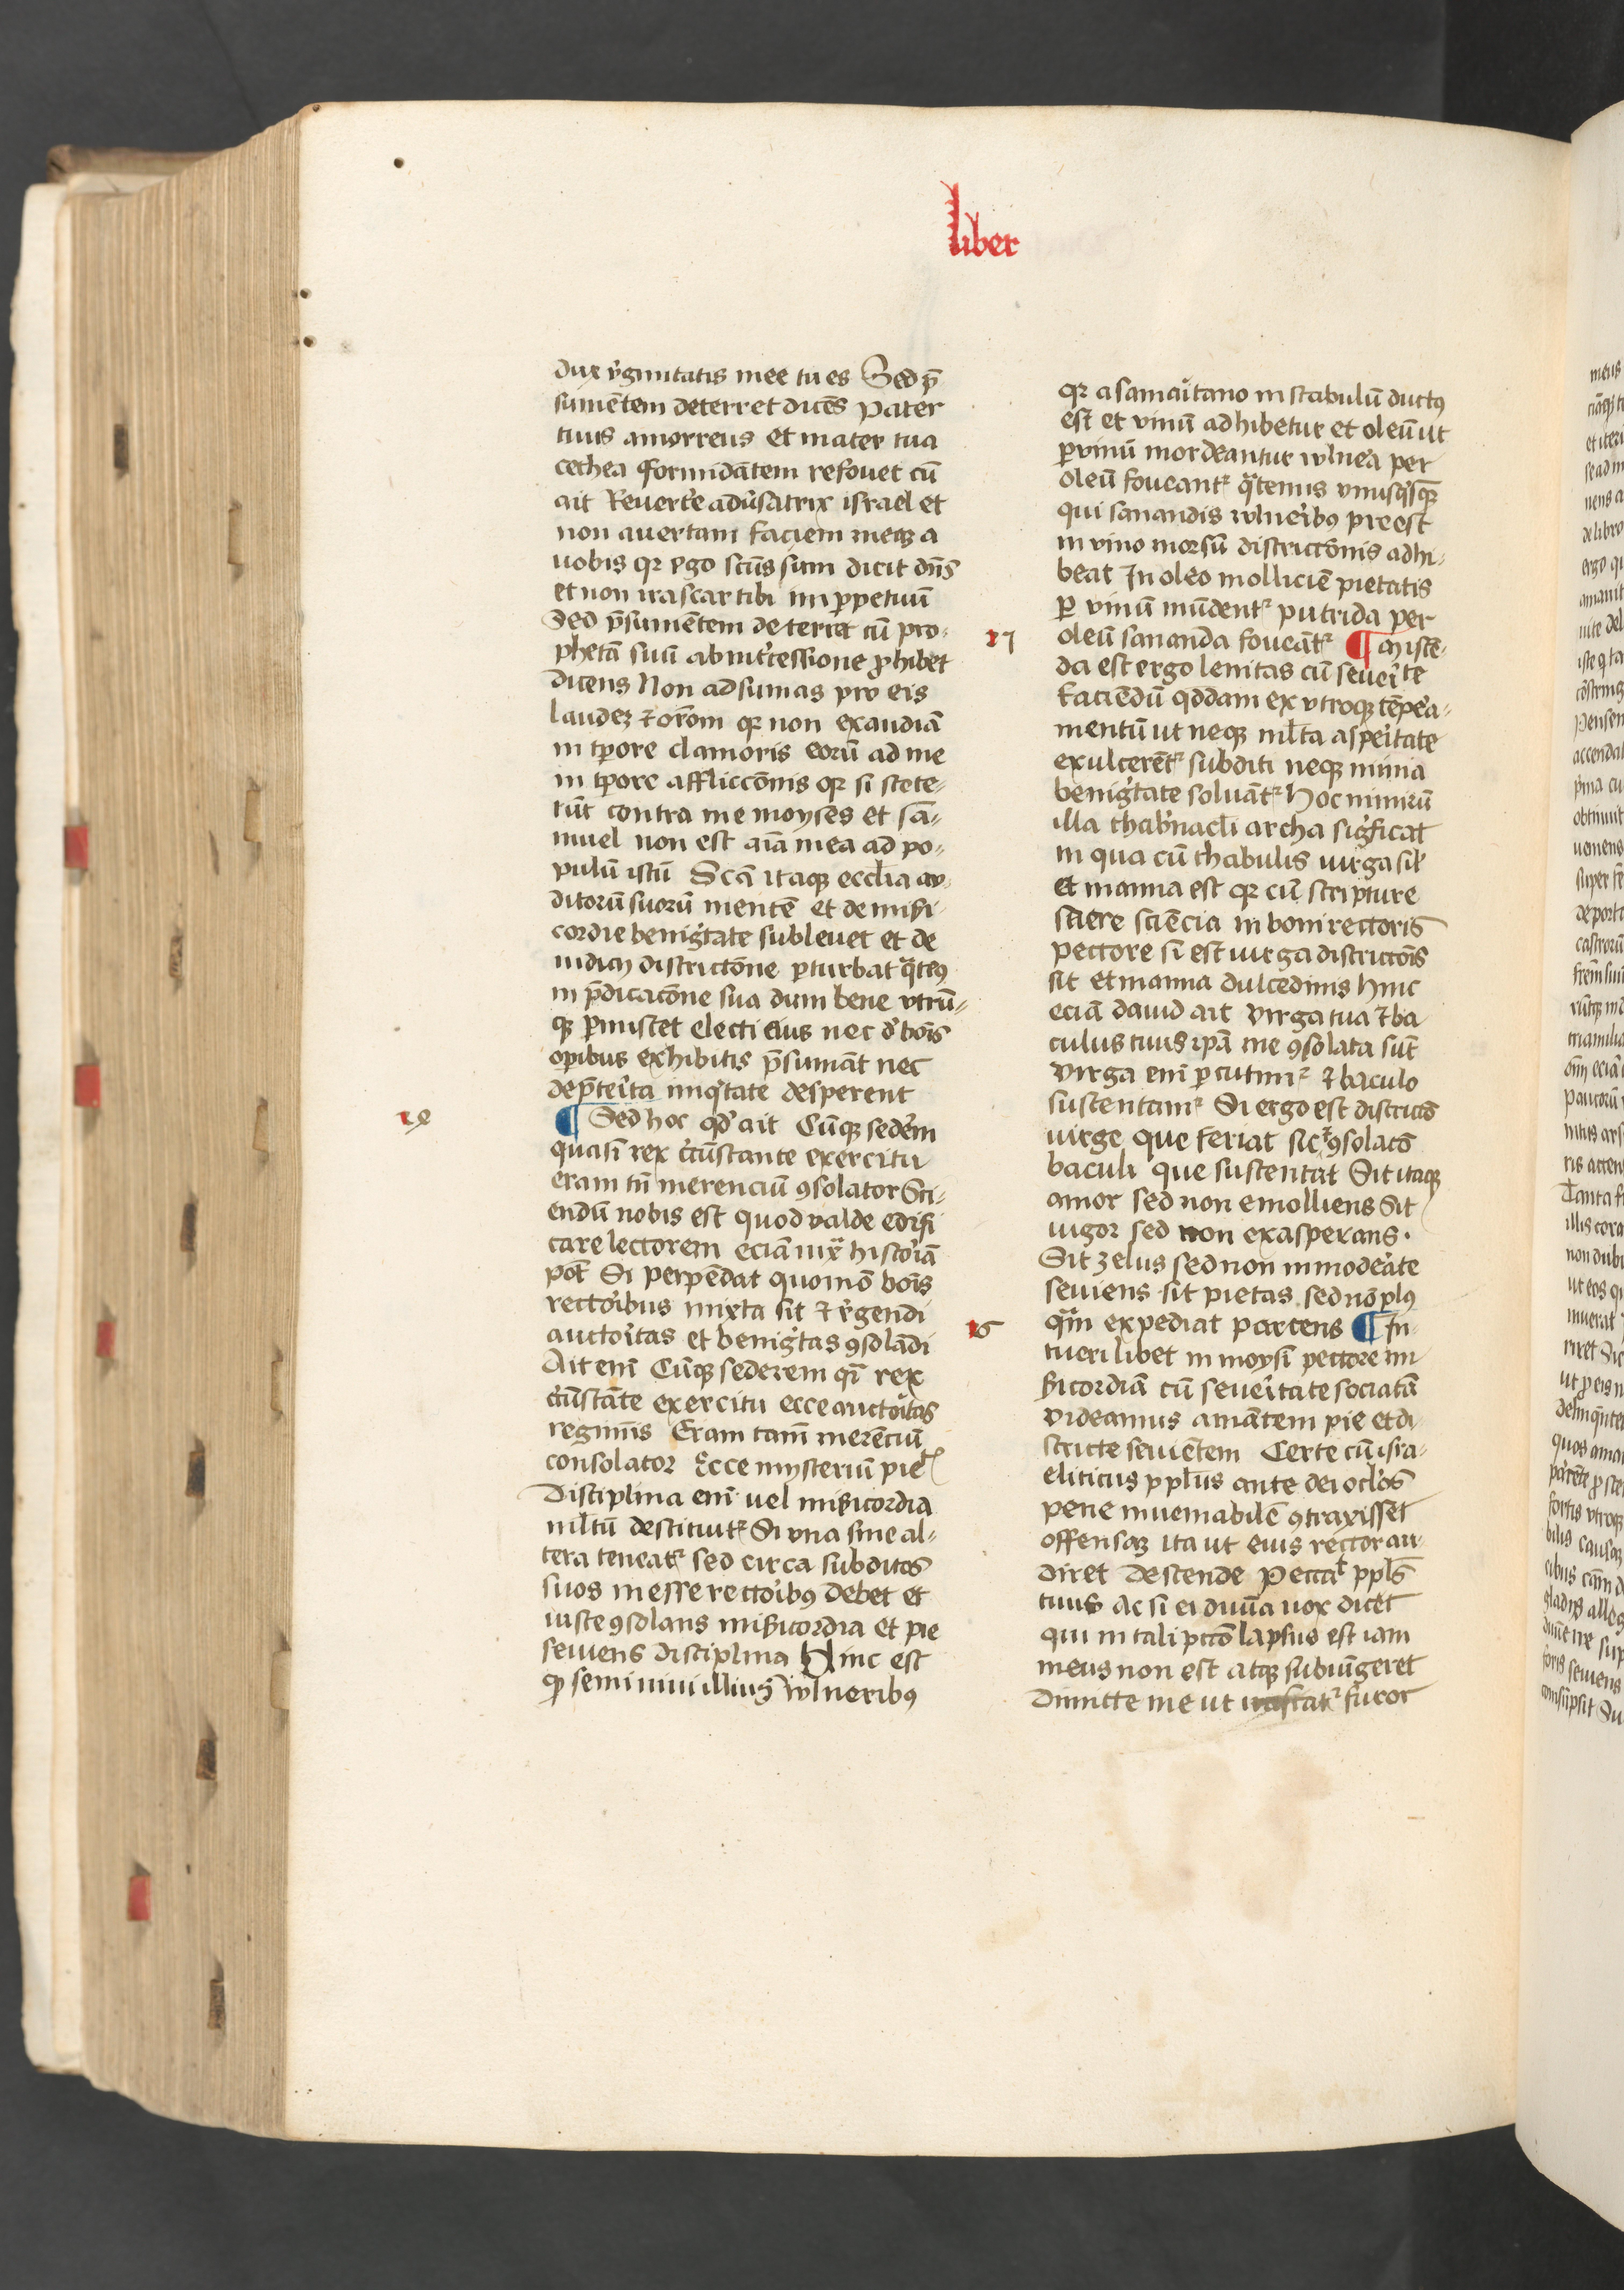 liber
dux v̓ginitatis mee tu es Sed p̄
sumētem deterret dicēs Pater
tuus amorreus et mater tua
cethea formidātem refouet cū
ait Reuert̓e adūsatrix israel et
non auertam faciem meaꝫ a
uobis qꝛ ego sct̄us sum dicit dn̄s
et non irascar tibi in ꝑpetuū
Sed p̄sumētem deterret cū pro-
phetā suū ab int̓cessione ꝓhibet
dicens Non adsumas pro eis
laudeꝫ ⁊ orōm qꝛ non exaudiā
in tꝑore clamoris eorū ad me
in tꝑore afflicc̄onis qꝛ si stete-
rūt contra me moyses et sā-
muel non est aīa mea ad po-
pulū istū Scā itaqꝫ ecclīa au-
ditorū suorū mentē et de mīsi-
cordie benig̓tate subleuet et de
iudicij districtōne ꝑturbat q̄ten9
in p̄dicacōne sua dum bene vtrū-
qꝫ ꝑmiscet electi eius nec d̓ bōis
oꝑibus exhibitis p̄sumāt nec
de p̄terita iniq̓tate desperent
¶ Sed hoc qd̓ ait Cūqꝫ sed̓em
quasi rex c̓cūstante exercitu
eram tn̄ merenciū ꝯsolator Sci-
endū nobis est quod valde edifi
care lectorem eciā iuxͣ histor̓iā
pōt Si perpēdat quomō bōis
rector̓ibus mixta sit ⁊ v̓gendi
auctor̓itas et benig̓tas ꝯsolādi
Ait enī Cūqꝫ sederem qͥ rex
c̓cūstāte exercitu ecce auctor̓itas
regiminis Eram tamē merēciū
consolator Ecce mysteriū pie⁊
Disciplina enī uel mīsicordia
mltū destituit᷑ Si vna sine al-
tera teneat᷑ sed circa subditos
suos inesse rector̓ib9 debet et
iuste ꝯsolans mīsicordia et pie
seuiens disciplina Hinc est
qꝫ semiuiui illius wlnerib9
qꝛ a samar̓itano in stabulū duct9
est et vinū adhibetur et oleū ut
ꝑ vinū mordeantur wlnera per
oleū foueant᷑ q̄tenus vnusqͥsqꝫ
qui sanandis wlner̓ib9 preest
in vino morsū districtōnis adhi-
beat In oleo molliciē pietatis
ꝑ vinū mūdent᷑ putrida per
oleū sananda foueāt᷑ ¶ Miscē-
da est ergo lenitas cū seuer̓ite
faciēdū qd̓dam ex vtroqꝫ tēper̓a-
mentū ut neqꝫ ml̄ta asper̓itate
exulcerēt᷑ subditi neqꝫ nimia
benig̓tate soluāt᷑ Hoc nimirū
illa thab̓nacl̄i archa sig̓ficat
in qua cū thabulis uirga sil̓
et manna est qꝛ cū scripture
sacre sciēcia in boni rectoris
pectore si est uirga districtōis
sit et manna dulcedinis hinc
eciā dauid ait Virga tua ⁊ ba
culus tuus ip̄ā me ꝯsolata sūt
Virga enī ꝑcutim᷑ ⁊ baculo
sustentam᷑ Si ergo est districtō
uirge que feriat sit ⁊ ꝯsolatō
baculi que sustentat Sit itaqꝫ
amor sed non emolliens Sit
uigor sed non exasperans.
Sit zelus sed non inmoder̓ate
seuiens sit pietas sed nō pl9
qͣm expediat parcens ¶ In-
tueri libet in moysi pectore mi
sicordiā cū seuer̓itate sociatā
videamus amātem pie et di-
stricte seuiētem Certe cū isra-
eliticus ppl̄us ante dei oclos
pene inueniabilē ꝯtraxisset
offensaꝫ ita ut eius rector au-
diret Descende Peccaͭ ppl̄s
tuus Ac si ei diuīa uox dic̓et
qui in tali pctō lapsus est iam
meus non est atqꝫ subiūgeret
Dimitte me ut irascat᷑ furor
17
18
16